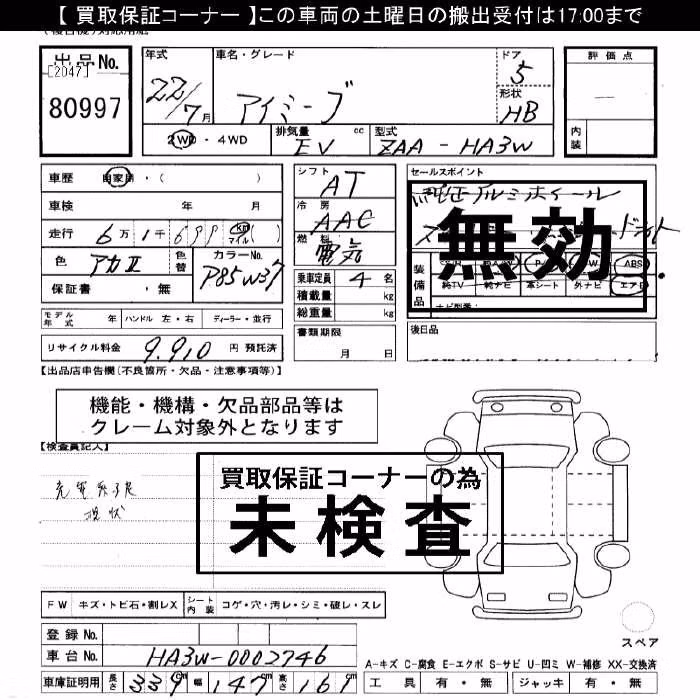 【 買取保証コーナー 】この車両の土曜日の搬出受付は17:00まで
出品No.
[2047]
80997
年式
22/7月
車名・グレード
アイミーブ
ドア
5
形状
HB
評価点
内装
2WD・4WD
排気量 cc
EV
型式
ZAA-HA3W
車歴 自家用・( )
車検 年 月
走行 6万1千699 km マイル ( )
色 アカII 色替
カラーNo.
P85W37
保証書 ・無
シフト
AT
冷房
AAC
燃料
電気
乗車定員 4 名
積載量 kg
総重量 kg
セールスポイント
純正アルミホイール
無効
装備品
ABS
純TV 純ナビ 革シート 外ナビ エアB
モデル年式 年 ハンドル 左・右 ディーラー・並行
リサイクル料金 9,910 円 預託済
書類期限
月 日
後日品
【出品店申告欄(不良箇所・欠品・注意事項等)】
機能・機構・欠品部品等は
クレーム対象外となります
【検査員記入】
現状
買取保証コーナーの為
未検査
FW キズ・トビ石・割レX シート内装 コゲ・穴・汚レ・シミ・破レ・スレ
登録No.
車台No. HA3W-0002746
車庫証明用 長さ 339cm 幅 147cm 高さ 161cm
スペア
A-キズ C-腐食 E-エクボ S-サビ U-凹ミ W-補修 XX-交換済
工具 有・無 ジャッキ 有・無